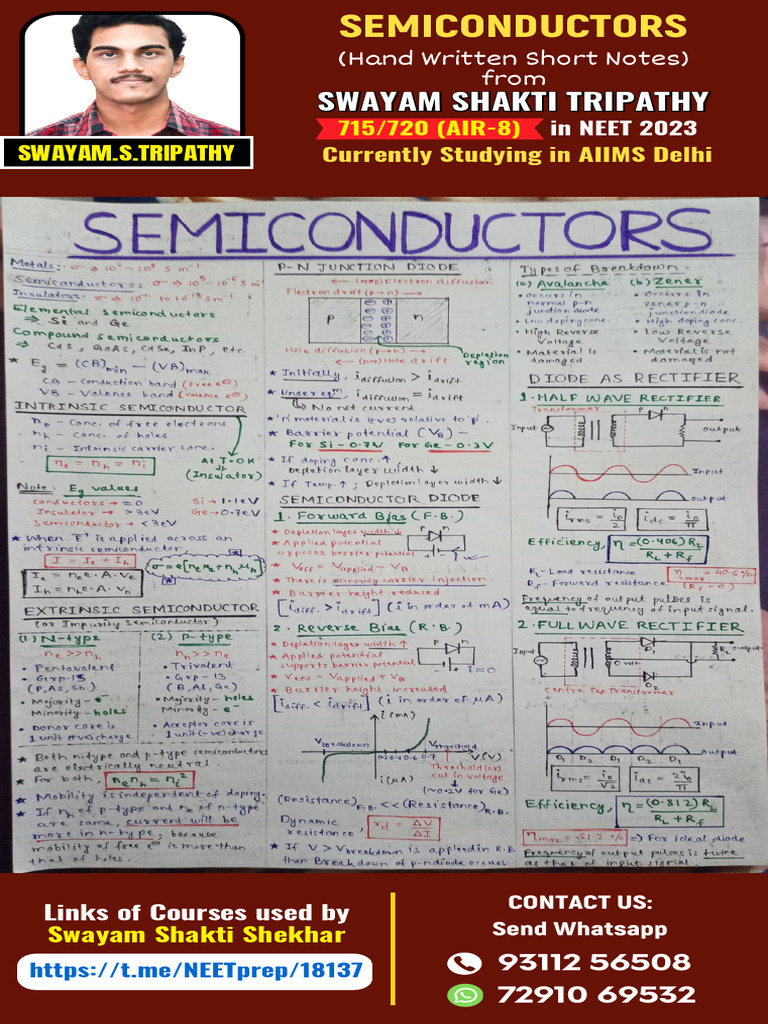 SEMICONDUCTORS
(Hand Written Short Notes)
from
SWAYAM SHAKTI TRIPATHY
715/720 (AIR-8) in NEET 2023
Currently Studying in AIIMS Delhi
SWAYAM.S.TRIPATHY
SEMICONDUCTORS
Metals: σ → 10² - 10⁸ S m⁻¹
Semiconductors: σ → 10⁵ - 10⁻⁶ S m⁻¹
Insulators: σ → 10⁻¹¹ to 10⁻¹⁹ S m⁻¹
Elemental semiconductors
⇒ Si and Ge
Compound semiconductors
⇒ CdS, GaAs, CdSe, InP, etc.
* Eg = (CB)min - (VB)max
CB - Conduction band (Free e⊖)
VB - Valence band (Valence e⊖)
INTRINSIC SEMICONDUCTOR
ne - Conc. of free electrons
nh - Conc. of holes
ni - Intrinsic carrier conc.
ne = nh = ni
At T=0K
(Insulator)
Note: Eg values
Conductors → ≈0
Si → 1.1eV
Insulator → >3eV
Ge → 0.7eV
Semiconductor → <3eV
* When 'E' is applied across an
intrinsic semiconductor
I = Ie + Ih
Ie = nee.A.Ve
Ih = nhe.A.Vh
σ = e[neμe + nhμh]
EXTRINSIC SEMICONDUCTOR
(or Impurity semiconductor)
(1) N-type
ne >> nh
• Pentavalent
• Grp-15
(P, As, Sb)
• Majority - e⊖
Minority - holes
• Donor core is
1 unit (+ve) charge
(2) P-type
nh >> ne
• Trivalent
• Grp-13
(B, Al, Ga)
• Majority - holes
Minority - e⊖
• Acceptor core is
1 unit (-ve) charge
* Both n-type and p-type semiconductors
are electrically neutral.
* For both, nenh = ni²
* Mobility is independent of doping.
* If nh of p-type and ne of n-type
are same, current will be
more in n-type; because
mobility of free e⊖ is more than
that of holes.
P-N JUNCTION DIODE
← (n→p) Electron diffusion
Electron drift (p→n) →
p
n
Hole diffusion (p→n) →
← (n→p) Hole drift
Depletion
region
* Initially, idiffusion > idrift
* Under eqm, idiffusion = idrift
No net current
* 'n' material is (+ve) relative to 'p'.
* Barrier potential (VB) -
For Si - 0.7V For Ge - 0.3V
* If doping conc. ↑
Depletion layer width ↓
* If Temp. ↑; Depletion layer width ↓
SEMICONDUCTOR DIODE
1. Forward Bias (F.B.)
* Depletion layer width ↓
* Applied potential
opposes barrier potential
* Veff = Vapplied - VB
* There is minority carrier injection
* Barrier height reduced
[idiff. > idrift] (i in order of mA)
2. Reverse Bias (R.B.)
* Depletion layer width ↑
* Applied potential
supports barrier potential
i≈0
* Veff = Vapplied + VB
* Barrier height increased
[idiff. < idrift] (i in order of μA)
i (mA)
Vbreakdown
0.2 0.4 0.6 0.7
Vthreshold
V(V)
Threshold (or)
cut in voltage
i(μA)
(~0.2V for Ge)
(Resistance)F.B. << (Resistance)R.B.
Dynamic
resistance,
rd = ΔV/ΔI
* If V > Vbreakdown is applied in R.B.
then Breakdown of p-n diode occurs.
Types of Breakdown:
(a) Avalanche
• occurs in
normal p-n
junction diode
• Low doping conc.
• High Reverse
Voltage
• Material is
damaged
(b) Zener
• Occurs in
zener p-n
junction diode
• High doping conc.
• Low Reverse
Voltage
• Material is not
damaged
DIODE AS RECTIFIER
1. HALF WAVE RECTIFIER
Transformer
Input
Output
Input
Output
irms = i0/2
idc = i0/π
Efficiency, η = (0.406) RL / RL + Rf
RL - Load resistance
Rf - Forward resistance
ηmax = 40.6%
(Rf = 0)
Frequency of output pulses is
equal to frequency of input signal.
2. FULL WAVE RECTIFIER
Input
D1
0 volt
RL
output
D2
Centre Tap Transformer
Input
D1 D2 D1 D2
Output
irms = i0/√2
idc = 2i0/π
Efficiency, η = (0.812) RL / RL + Rf
ηmax = 81.2% ⇒ For ideal diode
Frequency of output pulses is twice
as that of input signal.
Links of Courses used by
Swayam Shakti Shekhar
https://t.me/NEETprep/18137
CONTACT US:
Send Whatsapp
93112 56508
72910 69532